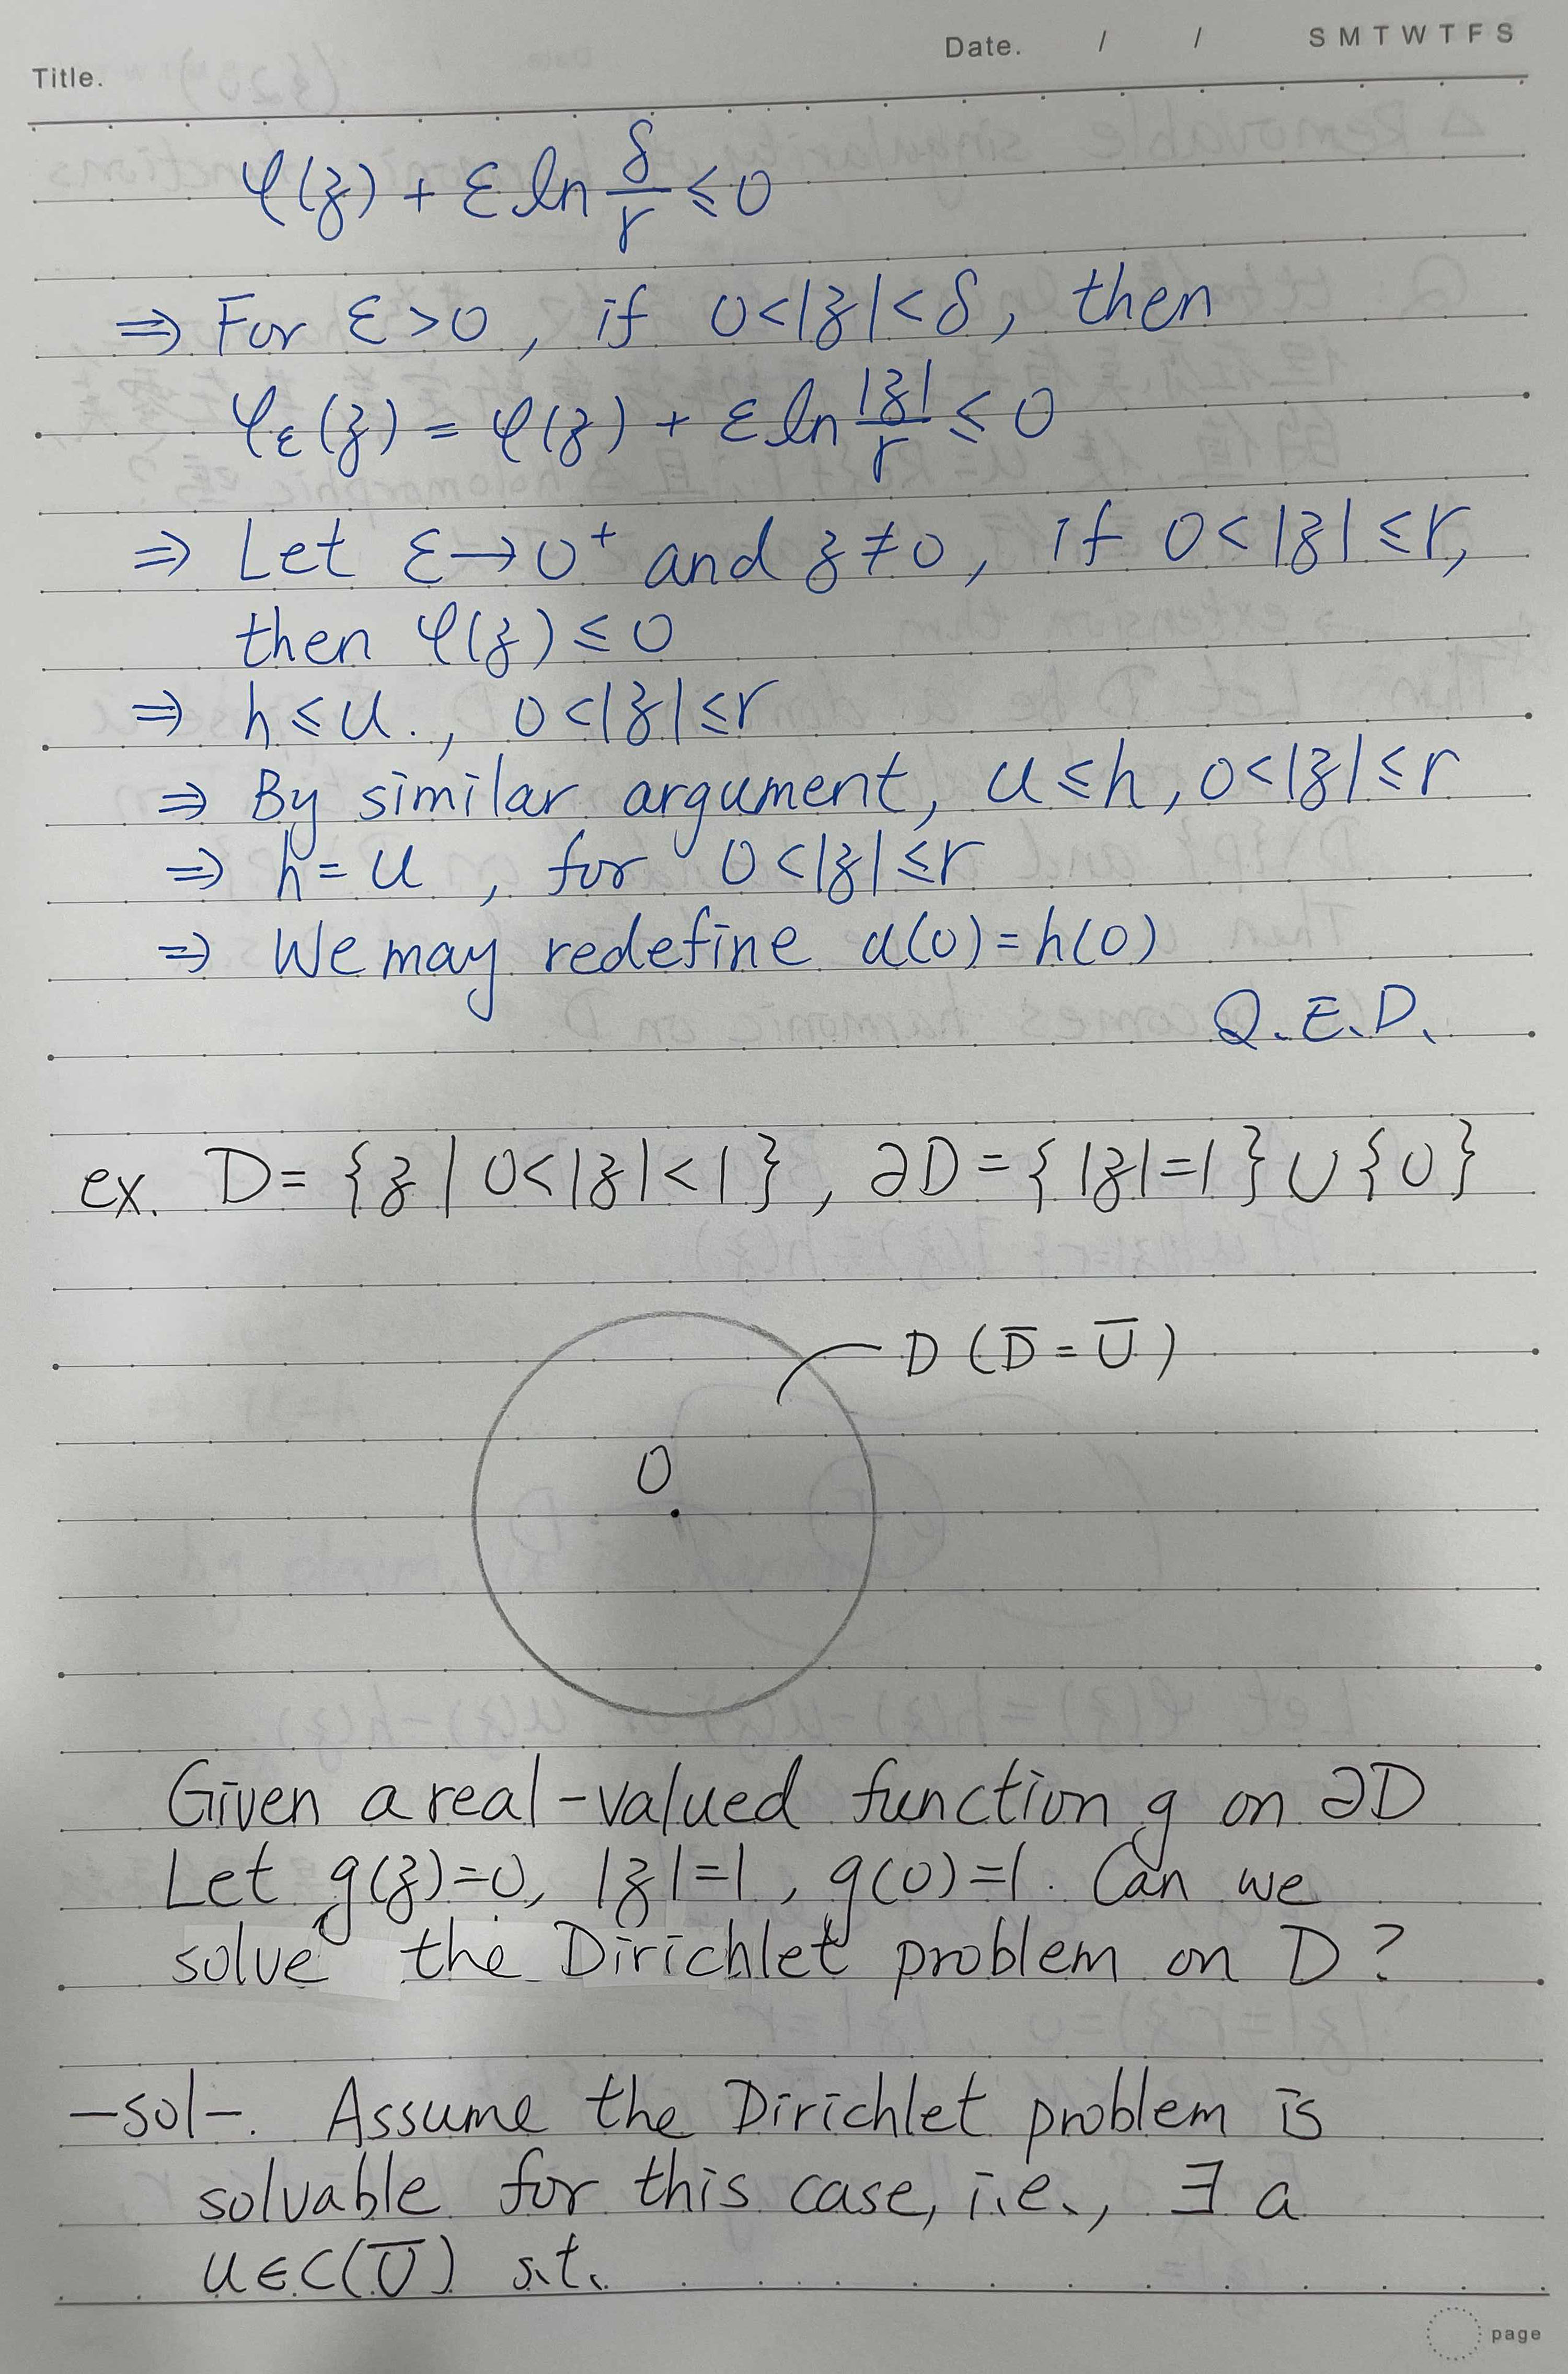 Title.
Date. / / S M T W T F S
φ(z) + ε ln δ/r ≤ 0
⇒ For ε > 0, if 0<|z|<δ, then
φ_ε(z) = φ(z) + ε ln |z|/r ≤ 0
⇒ Let ε→0⁺ and z≠0, if 0<|z|≤r,
then φ(z) ≤ 0
⇒ h ≤ u., 0<|z|≤r
⇒ By similar argument, u≤h, 0<|z|≤r
⇒ h = u, for 0<|z|≤r
⇒ We may redefine u(0)=h(0)
Q.E.D.
ex. D = {z | 0<|z|<1}, ∂D = {|z|=1} ∪ {0}
D (D̅ = U̅)
0
Given a real-valued function g on ∂D
Let g(z)=0, |z|=1, g(0)=1. Can we
solve the Dirichlet problem on D?
-sol-. Assume the Dirichlet problem is
solvable for this case, i.e., ∃ a
u∈C(U̅) s.t.
page